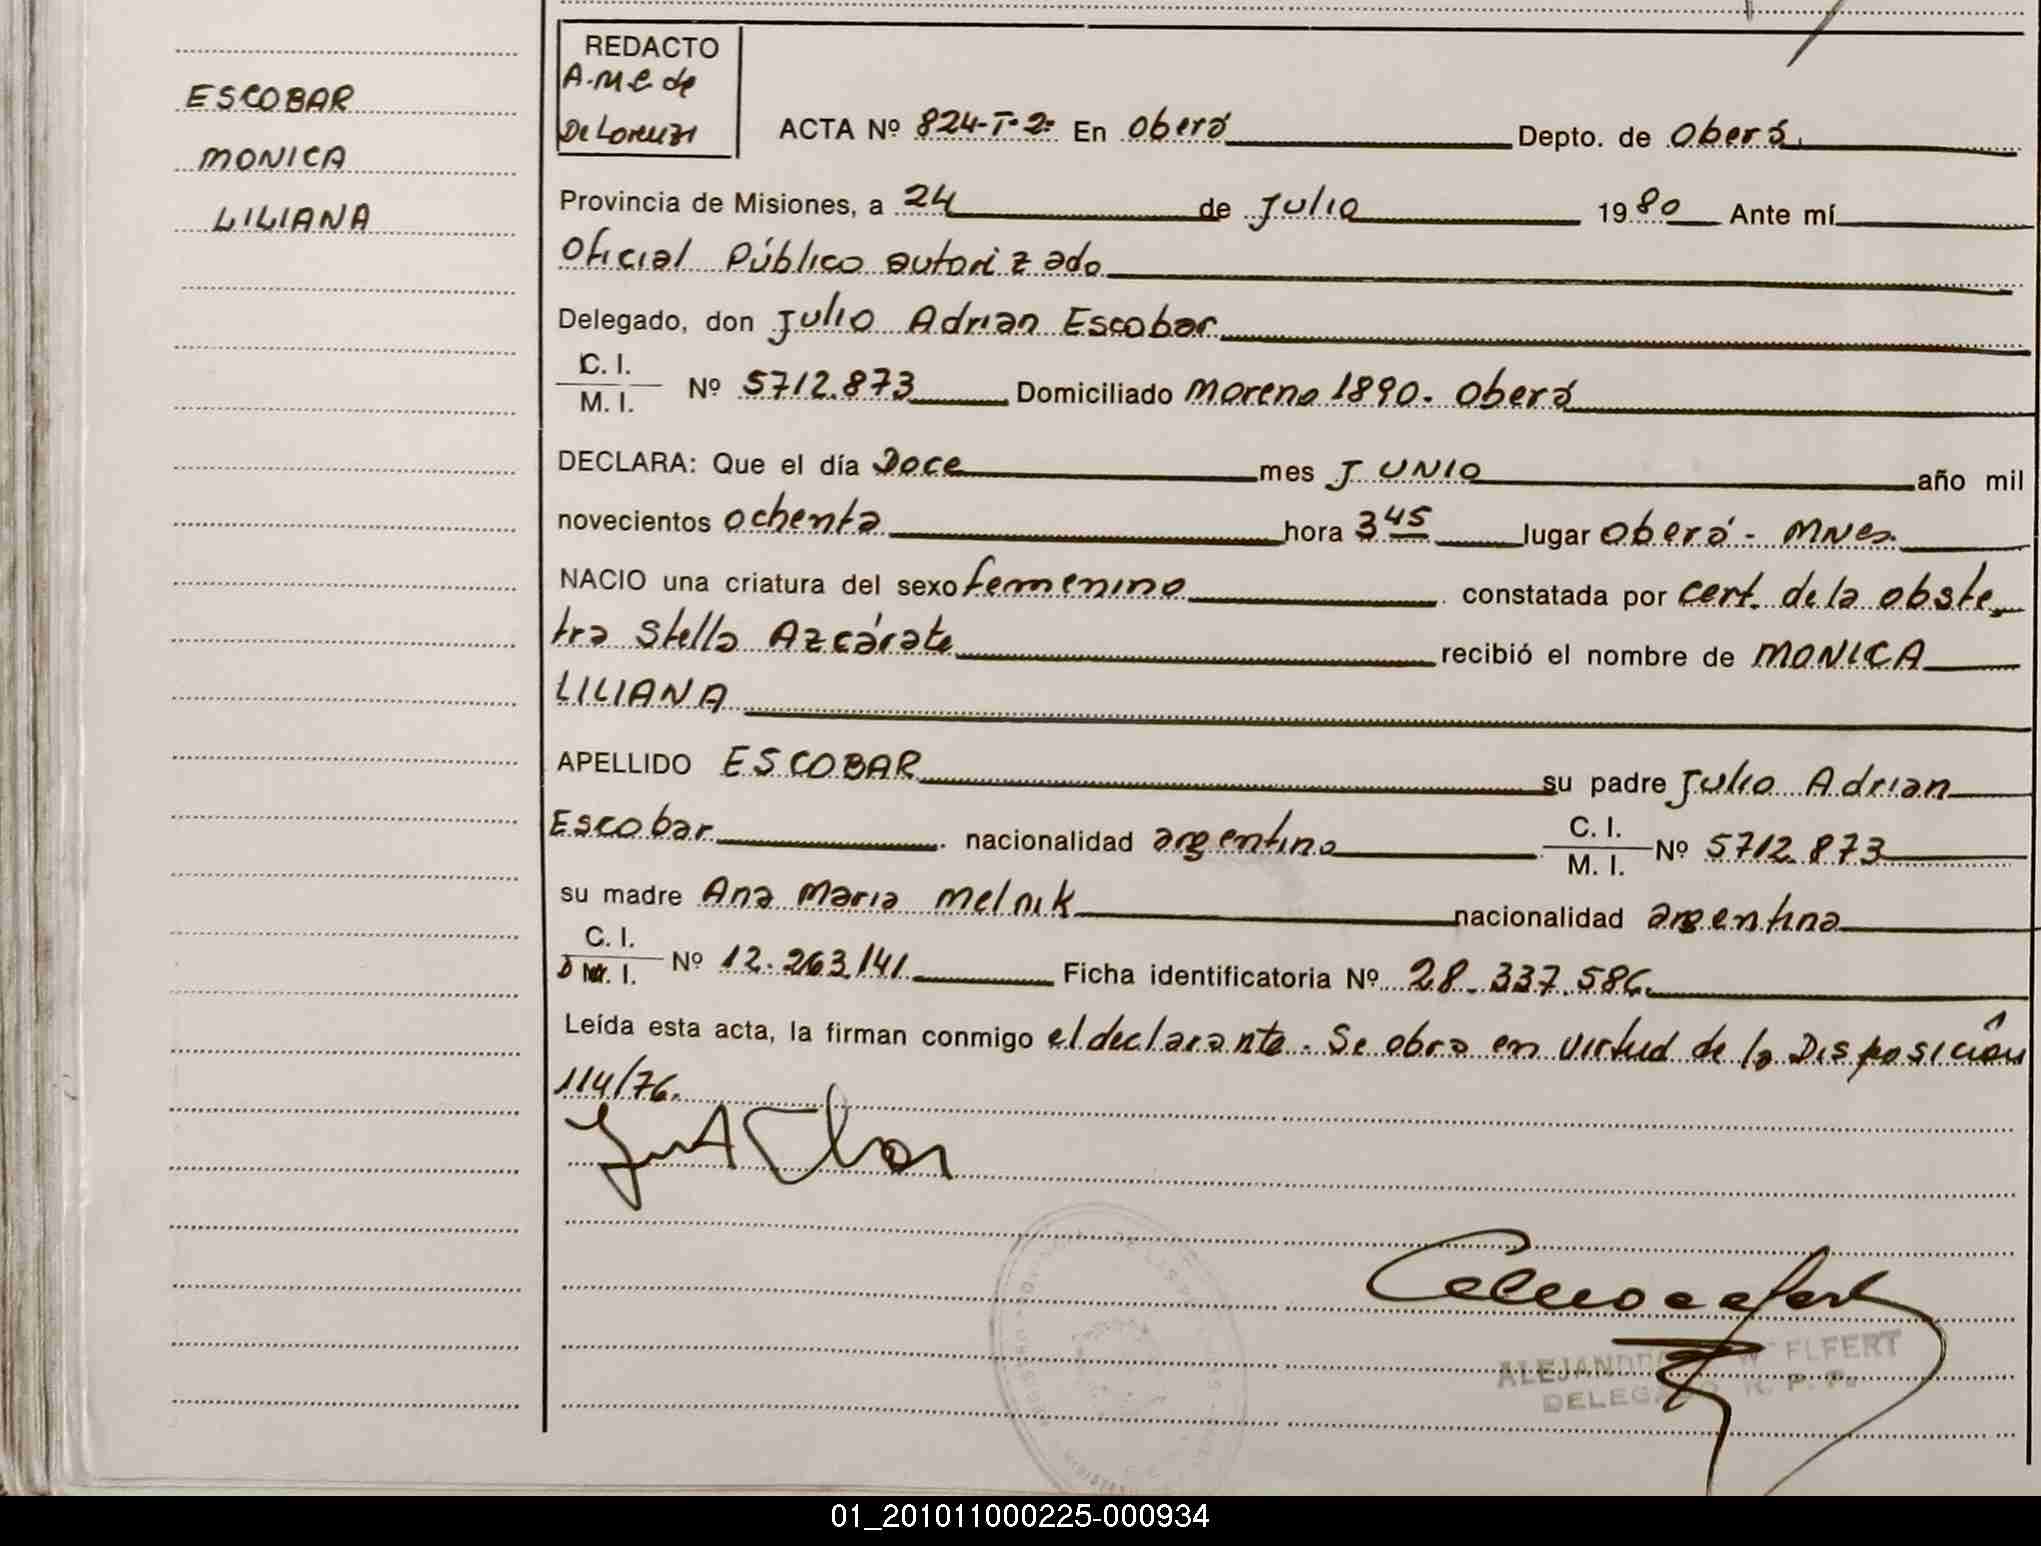 ESCOBAR
MONICA
LILIANA
REDACTO
A.M.C de
De Lorenzi
ACTA Nº 824-T-2= En Oberá Depto. de Oberá.
Provincia de Misiones, a 24 de Julio 1980 Ante mí
Oficial Público autorizado
Delegado, don Julio Adrian Escobar
C. I.
M. I. Nº 5712.873 Domiciliado Moreno 1890. Oberá
DECLARA: Que el día Doce mes JUNIO año mil
novecientos ochenta hora 3 45 lugar Oberá - Mnes.
NACIO una criatura del sexo femenino constatada por cert. de la obste_
tra Stella Azcárate recibió el nombre de MONICA
LILIANA
APELLIDO ESCOBAR su padre Julio Adrian
Escobar. nacionalidad argentino C. I.
M. I. Nº 5712.873
su madre Ana Maria Melnik nacionalidad argentina
C. I.
D M. I. Nº 12.263.141 Ficha identificatoria Nº 28.337.586.
Leída esta acta, la firman conmigo el declarante. Se obra en virtud de la Disposición
114/76.
DELEGADO R. P. P.
01_201011000225-000934